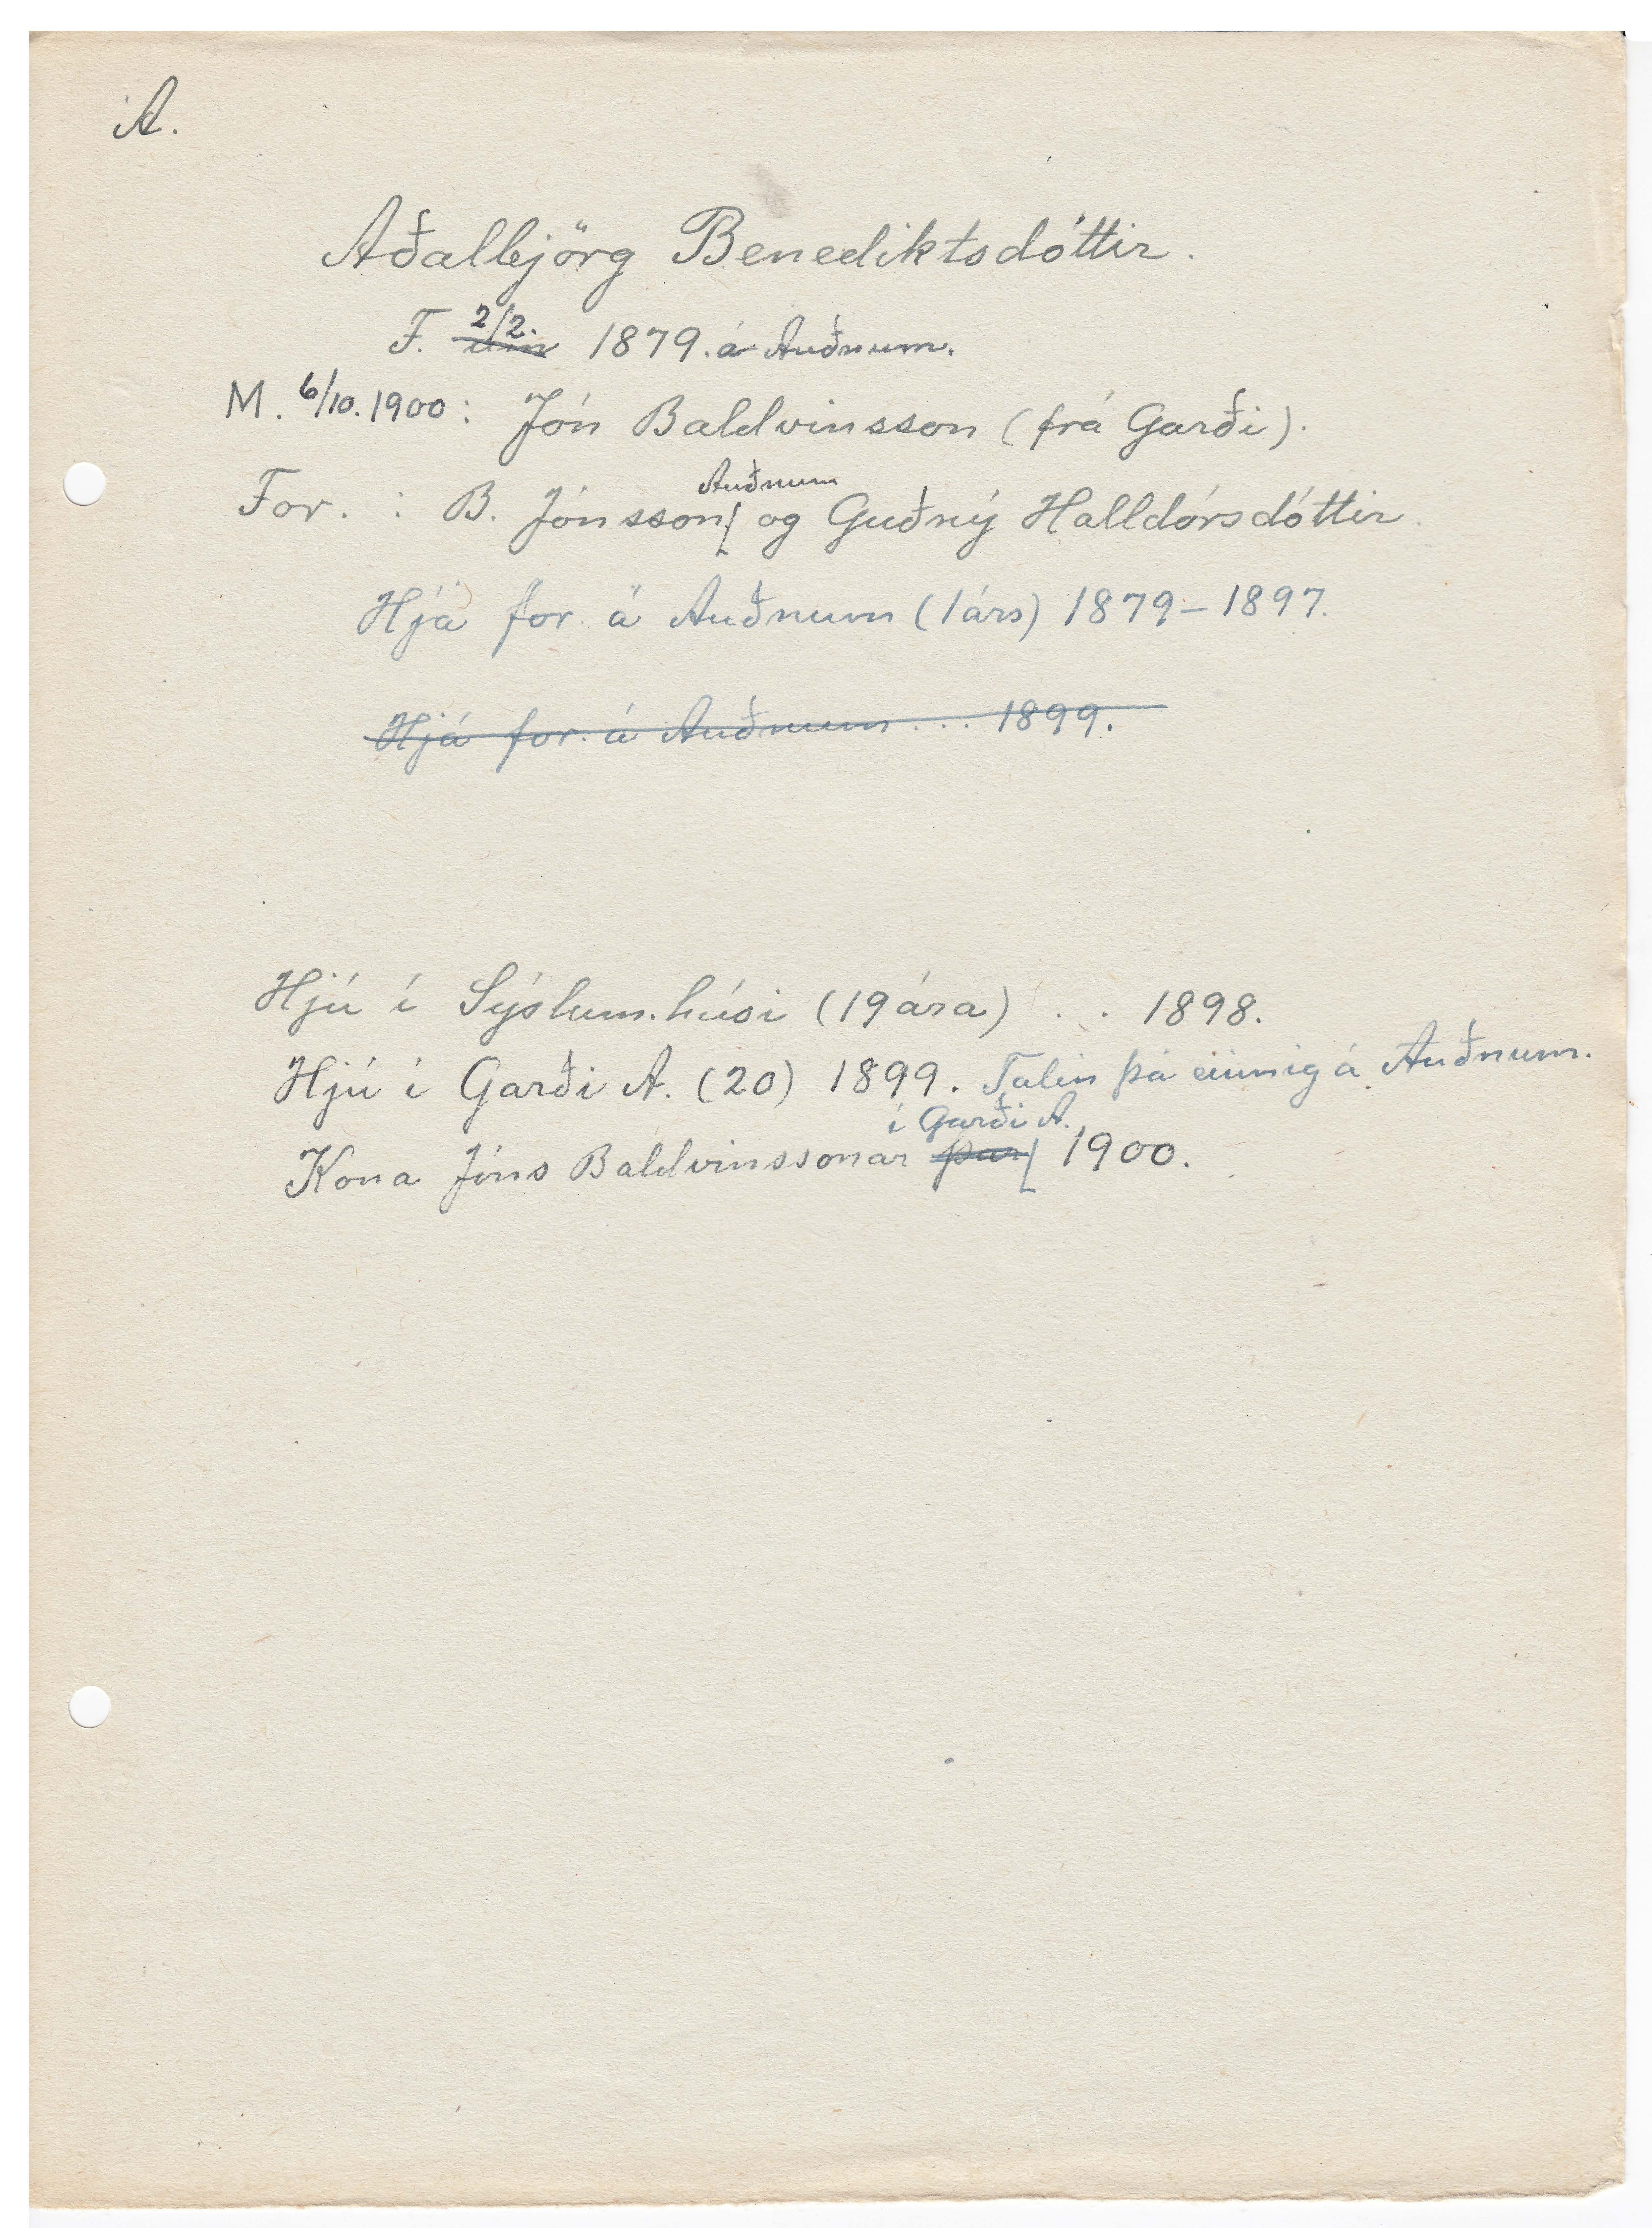 A.
Aðalbjörg Benediktsdóttir.
F. 2/2. 1879. á Auðnum.
M. 6/10. 1900: Jón Baldvinsson (frá Garði).
Auðnum
For. : B. Jónsson og Guðný Halldórsdóttir.
Hjá for. á Auðnum (1 árs) 1879 – 1897.
Hjá for. á Auðnum . . . 1899.
Hjú í Sýslum.húsi (19 ára) . . 1898.
Hjú í Garði A. (20) 1899. Talin þá einnig á Auðnum.
í Garði A.
Kona Jóns Baldvinssonar þar 1900.